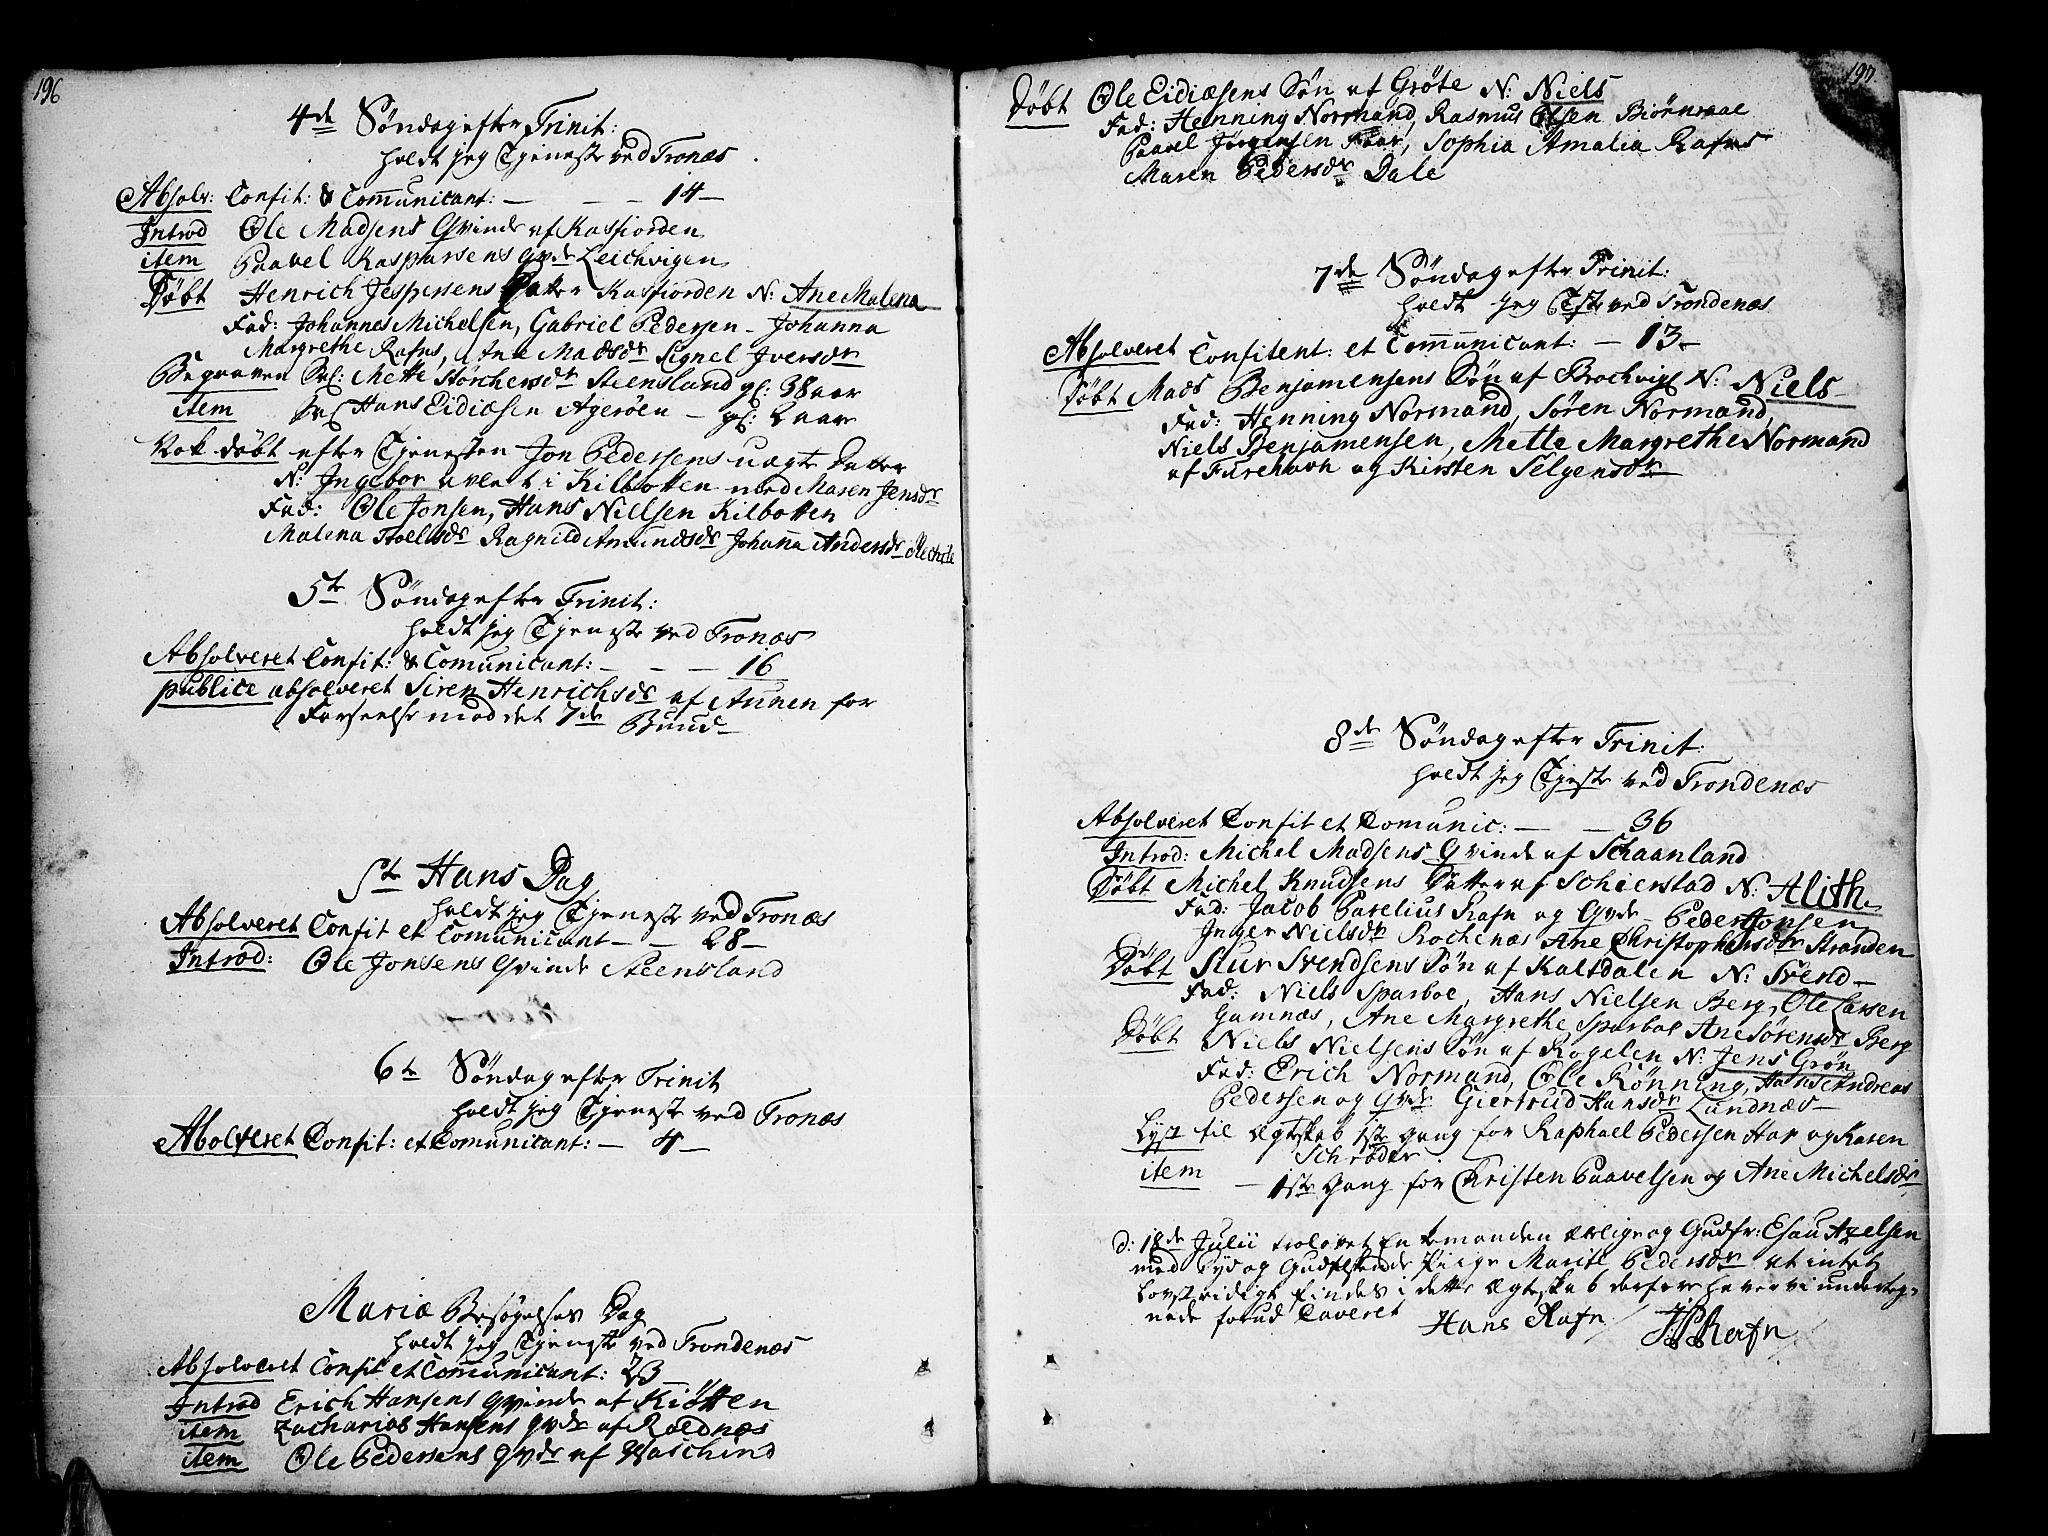 196
4de Søndag efter Trinit:
holdt jeg Tjeneste ved Tronæs
Absolv: Confit: & Communicant: — — — 14 —
Introd Ole Madsens Qvinde af Kasfiorden
item Paavel Kaspersens qvde Leichvigen
Døbt Henrich Jespersens Datter Kasfiorden N: Ane Malena
Fad: Johannes Michelsen, Gabriel Pedersen - Johanna
Margrethe Rafns, Ane Madsdr Signel Iversdr
Begraven Sal: Mette Storchersdr Steensland gl: 38 aar
item Sal Hans Eidiæsen Agerøen — gl: 2 aar
Nok døbt efter Tjenesten Jon Pedersens uægte Datter
N: Ingebor avlet i Kilbotten med Maren Jensdr
Fad: Ole Jonsen, Hans Nielsen Kilbotten
Malena Roelsdr Ragnild Amundsdr Johanna Andersdr
5te Søndag efter Trinit:
holdt jeg Tjeneste ved Tronæs
Absolveret Confit: & Comunicant: — — — 16
publice absolveret Siren Henrichsdr af Aunen for
Forseelse mod det 7de Buud —
St Hans Dag
holdt jeg Tjeneste ved Tronæs
Absolveret Confit et Comunicant — — 28 —
Introd: Ole Jonsens Qvinde Steensland
6te Søndag efter Trinit
holdt jeg Tjeneste ved Tronæs
Absolveret Confit: et Comunicant: — 4 —
Mariæ Besøgelses Dag
holdt jeg Tjeneste ved Trondenæs
Absolveret Confit et Communicant: 23
Introd Erich Hansens qvinde af Kiøtten
item Zacharias Hansens qvde af Roldnæs
item Ole Pedersens qvde af Waschind
197
Døbt Ole Eidiæsens Søn af Grøte N: Niels
Fad: Henning Normand, Rasmus Olsen Biørnraae
Paavel Jørgensen Faar, Sophia Amalia Rafns
Maren Pedersdr Dale
7de Søndag efter Trinit:
holdt jeg Tjste ved Trondenæs
Absolveret Confitent: et Communicant: — 13 —
Døbt Mads Benjamensens Søn af Brochvigl N: Niels —
Fad: Henning Normand, Søren Normand,
Niels Benjamensen, Mette Margrethe Normand
af Furehavn og Kirsten Selgensdr
8de Søndag efter Trinit:
holdt jeg Tjeste ved Trondenæs
Absolveret Confit et Comunic: — — 36
Introd: Michel Madsens Qvinde af Schaanland
Døbt Michel Knudsens Datter af Schierstad N: Alith
Fad: Jacob Parelius Rafn og Qvde — Peder Jonsen
Inger Nielsdr Rochenæs Ane Christophersdr Stranden
Døbt Siur Svendsens Søn af Kalsdalen N: Svend —
Fad: Niels Sparboe, Hans Nielsen Berg, Ole Larsen
Gamnæs, Ane Margrethe Sparboe Ane Sørensdr Berg
Døbt Niels Nielsens Søn af Rogelen N: Jens Grøn
Fad: Erich Normand, Ole Rønning, Hans Andreas
Pedersen og Qvde Giertrud Hansdr Lundnæs —
Lyst til Ægteskab 1ste gang for Raphael Pedersen Har og Karen
Schrøder
item — 1ste Gang for Christen Paavelsen og Ane Michelsdr
d: 18de Julii trolovet Enkemanden ærlige og Gudfr: Esau Axelsen
med dyd og Gudelskende Piige Marite Pedersdr at intet
Lovstridigt findes i dette Ægteskab derfore haver vi underteg-
nede forud Caveret Hans Rafn / JPRafn /